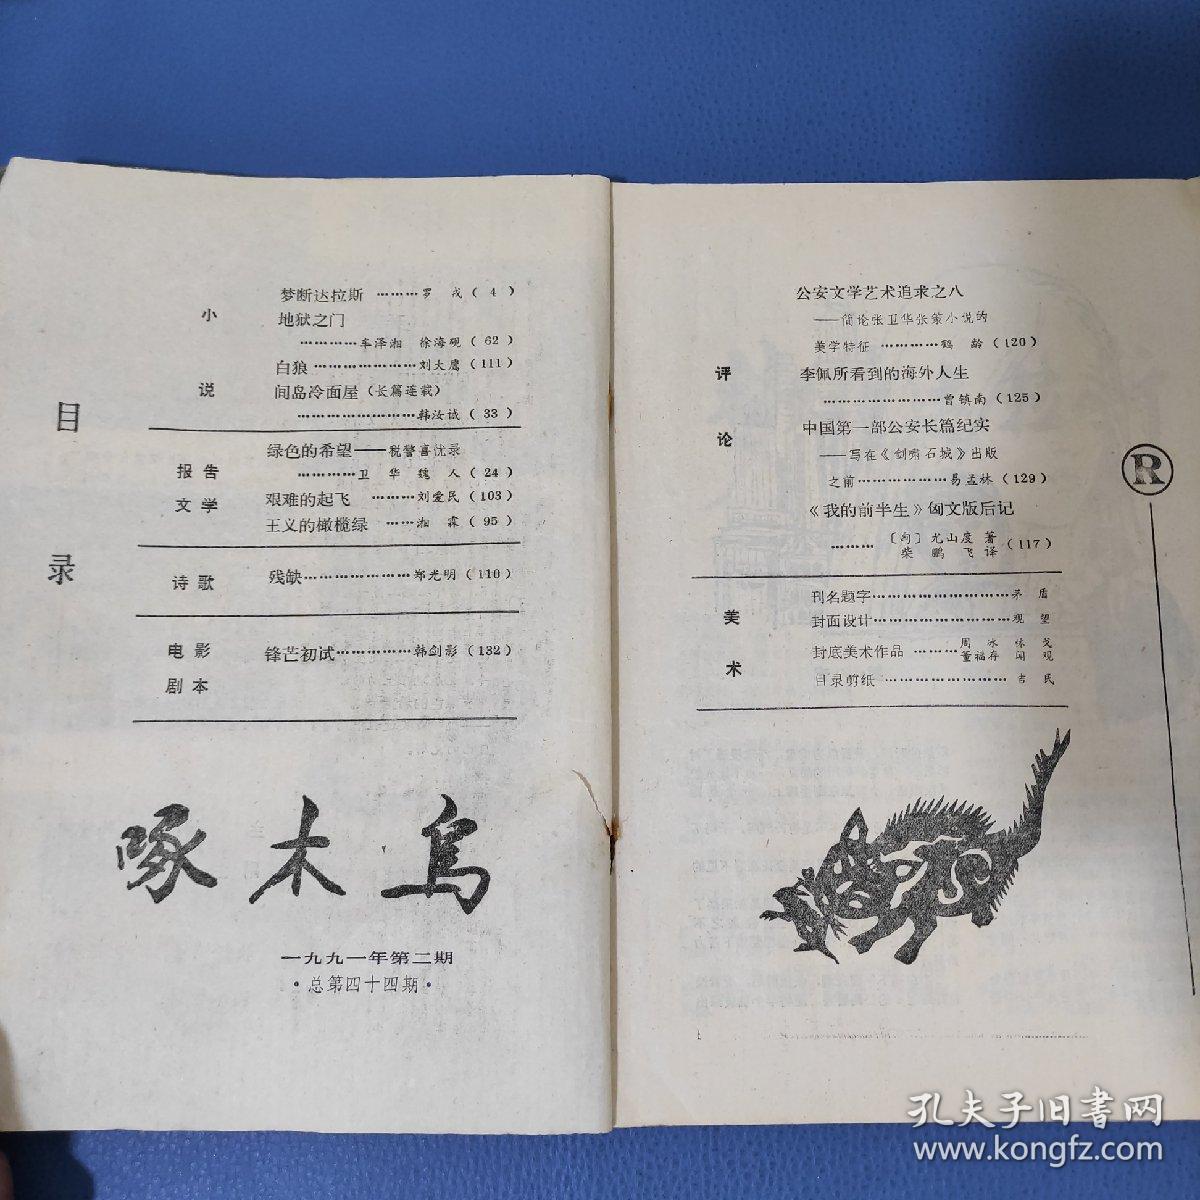 目录
小说
梦断达拉斯 ………罗 戎(4)
地狱之门
…………车泽湘 徐海砚(62)
白狼……………………刘大鹰(111)
间岛冷面屋(长篇连载)
……………………韩汝诚(33)
报告文学
绿色的希望——税警喜忧录
…………卫 华 魏 人(24)
艰难的起飞 ………刘爱民(103)
王义的橄榄绿 ……湘 霖(95)
诗歌
残缺……………………郑光明(110)
电影剧本
锋芒初试………………韩剑影(132)
啄木鸟
一九九一年第二期
·总第四十四期·
评论
公安文学艺术追求之八
——简论张卫华张策小说的
美学特征 …………鹤 龄(120)
李佩所看到的海外人生
……………………曾镇南(125)
中国第一部公安长篇纪实
——写在《剑啸石城》出版
之前………………易孟林(129)
《我的前半生》匈文版后记
………〔匈〕尤山度 著
柴 鹏 飞 译(117)
美术
刊名题字……………………………茅 盾
封面设计……………………………观 望
封底美术作品 ………周 冰 咏 戈
董福存 闻 观
目录剪纸 ……………………… 吉 民
R
1
孔夫子旧书网
www.kongfz.com